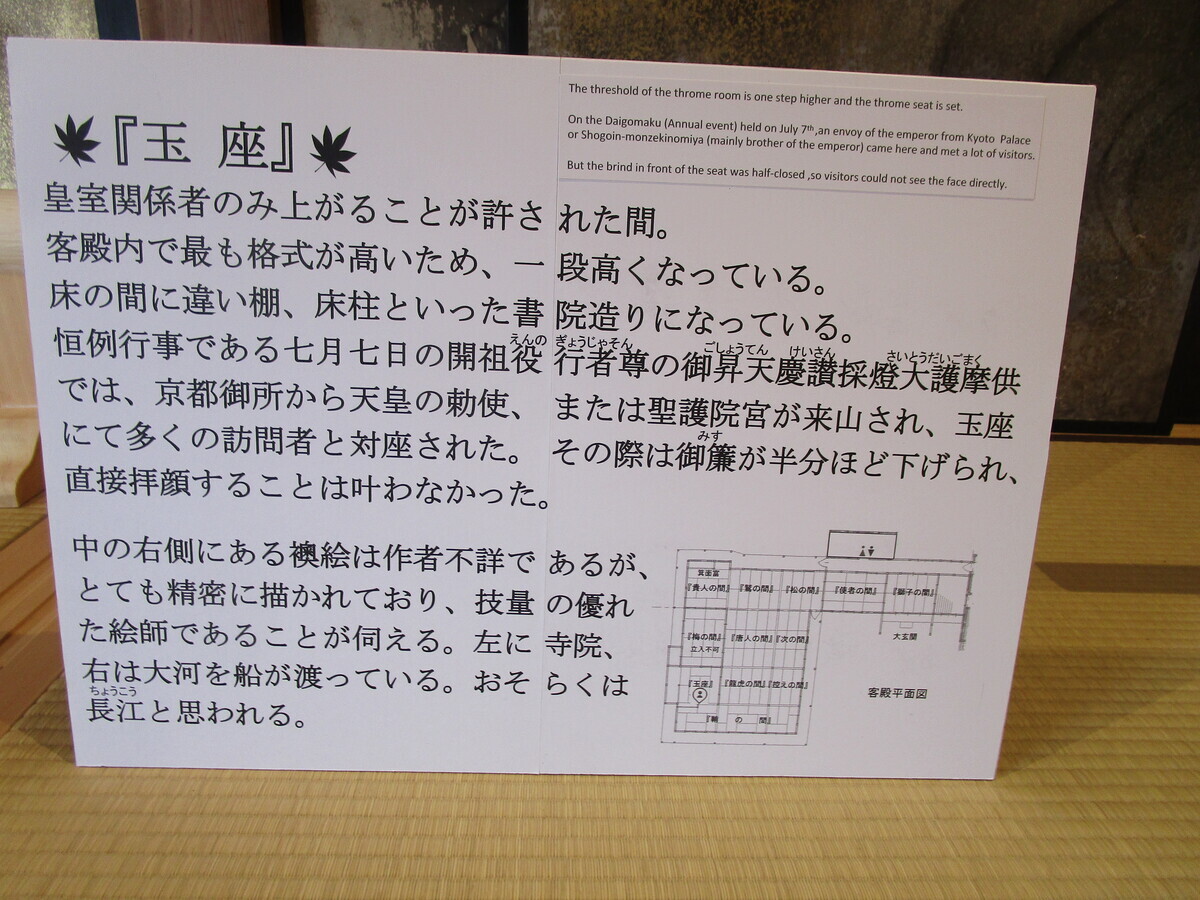 『玉座』
The threshold of the throme room is one step higher and the throme seat is set.
On the Daigomaku (Annual event) held on July 7th ,an envoy of the emperor from Kyoto Palace
or Shogoin-monzekinomiya (mainly brother of the emperor) came here and met a lot of visitors.
But the brind in front of the seat was half-closed ,so visitors could not see the face directly.
皇室関係者のみ上がることが許された間。
客殿内で最も格式が高いため、一段高くなっている。
床の間に違い棚、床柱といった書院造りになっている。
えんの ぎょうじゃそん ごしょうてん けいさん さいとうだいごまく
恒例行事である七月七日の開祖役行者尊の御昇天慶讃採燈大護摩供
では、京都御所から天皇の勅使、または聖護院宮が来山され、玉座
みす
にて多くの訪問者と対座された。その際は御簾が半分ほど下げられ、
直接拝顔することは叶わなかった。
中の右側にある襖絵は作者不詳であるが、
とても精密に描かれており、技量の優れ
た絵師であることが伺える。左に寺院、
右は大河を船が渡っている。おそらくは
ちょうこう
長江と思われる。
箕面富
『貴人の間』『鷲の間』『松の間』『使者の間』『獅子の間』
大玄関
『梅の間』『唐人の間』『次の間』
立入不可
『玉座』『龍虎の間』『控えの間』
客殿平面図
の間』